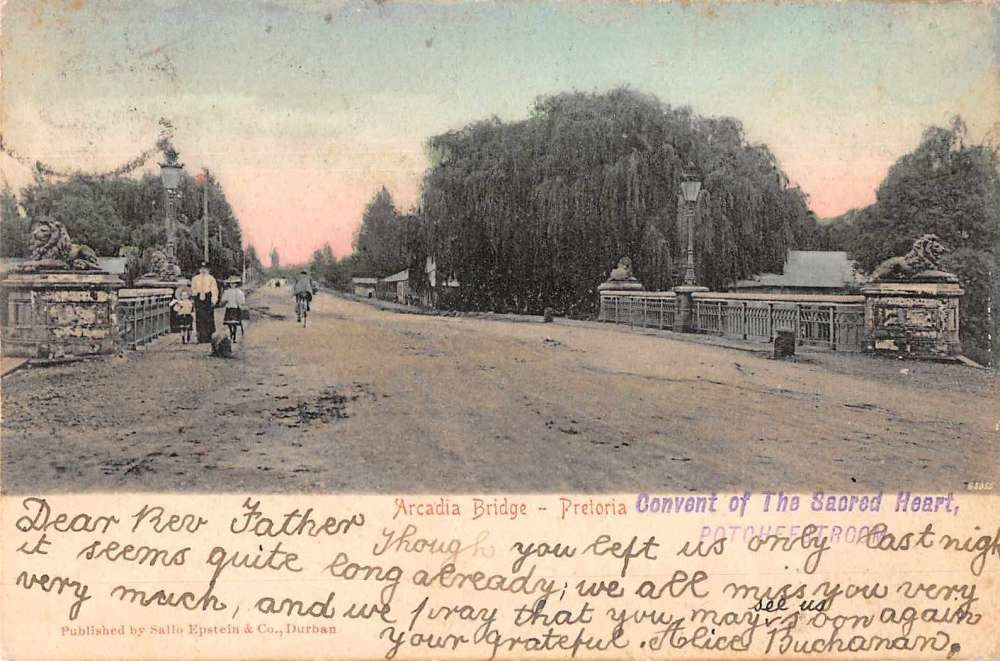 68955
Arcadia Bridge - Pretoria
Convent of The Sacred Heart,
POTCHEFSTROOM
Dear Rev Father
Though you left us only last nigh
it seems quite long already; we all miss you very
very much, and we pray that you may see us soon again
your grateful. Alice Buchanan.
Published by Sallo Epstein & Co., Durban